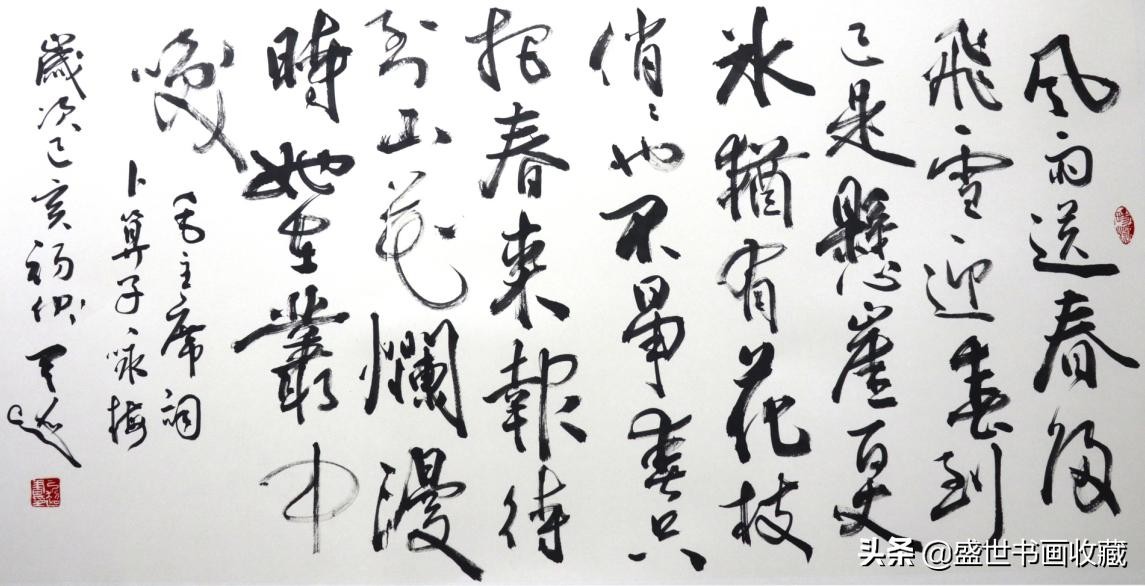 风雨送春归
飛雪迎春到
已是懸崖百丈
冰猶有花枝
俏〻也不争春只
把春來報待
到山花爛漫
時她在叢中
咲
毛主席詞
卜算子咏梅
歲次己亥初伏
头条 @盛世书画收藏